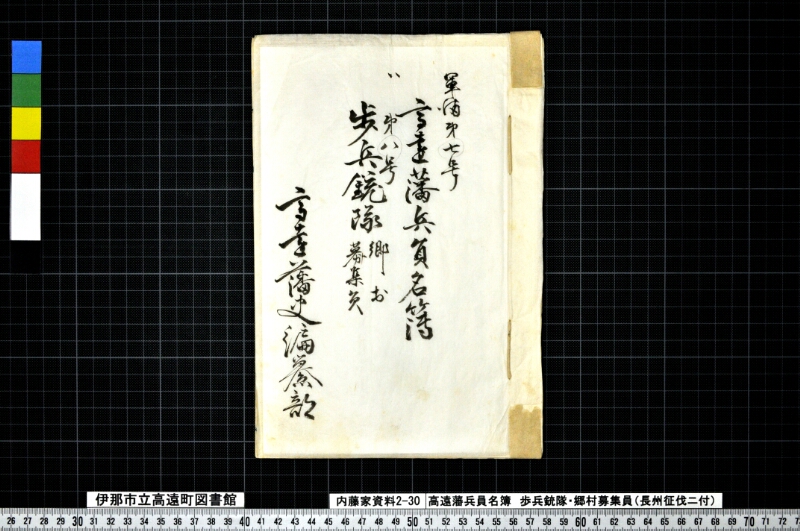 軍第七号
高遠藩兵員名簿
〃 第八号
歩兵銃隊 郷村
募集員
高遠藩史編纂部
伊那市立高遠町図書館
内藤家資料2-30 高遠藩兵員名簿 歩兵銃隊・郷村募集員(長州征伐ニ付)
26 27 28 29 30 31 32 33 34 35 36 37 38 39 40 41 42 43 44 45 46 47 48 49 50 51 52 53 54 55 56 57 58 59 60 61 62 63 64 65 66 67 68 69 70 71 72 73